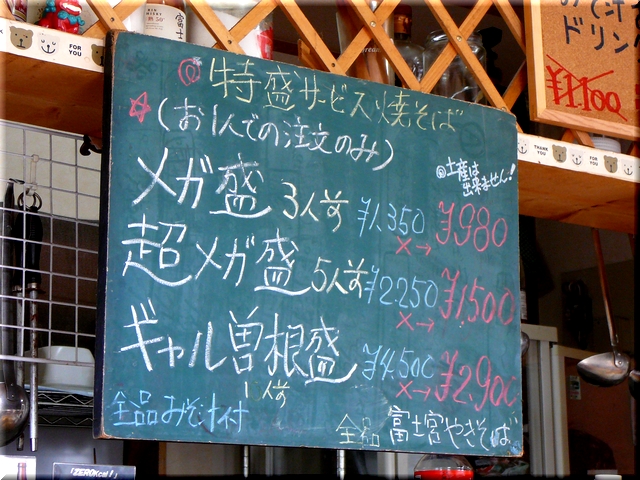 特盛サービス焼そば
(お1人での注文のみ)
土産は
出来ません!
メガ盛 3人前 ¥1,350 ×→ ¥980
超メガ盛 5人前 ¥2250 ×→ ¥1,500
ギャル曽根盛 ¥4,500 ×→ ¥2,900
1人前
全品みそ汁付
全品 富士宮やきそば
ドリン
¥1,100
FOR YOU
THANK YOU
FOR YOU
「ZEROKcal!」